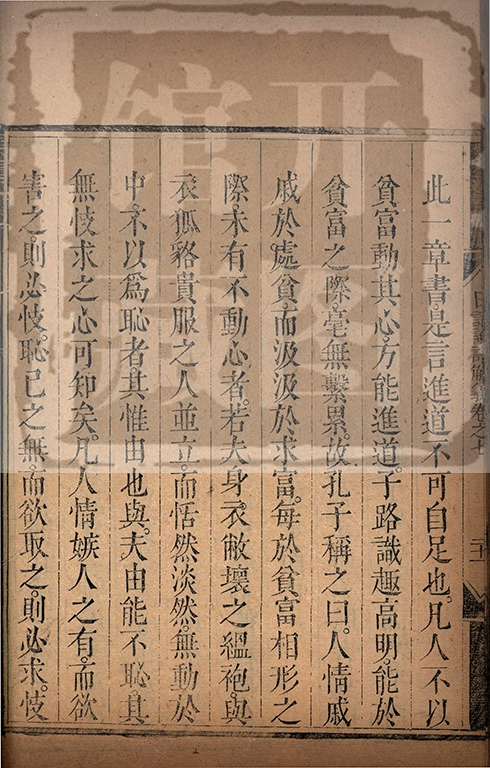 此一章書是言進道不可自足也凡人不以
貧富動其心方能進道子路識趣高明能於
貧富之際毫無繫累故孔子稱之曰人情戚
戚於處貧而汲汲於求富每於貧富相形之
際未有不動心者若夫身衣敝壞之縕袍與
衣狐貉貴服之人並立而恬然淡然無動於
中不以為恥者其惟由也與夫由能不恥其
無忮求之心可知矣凡人情嫉人之有而欲
害之則必忮恥己之無而欲取之則必求忮